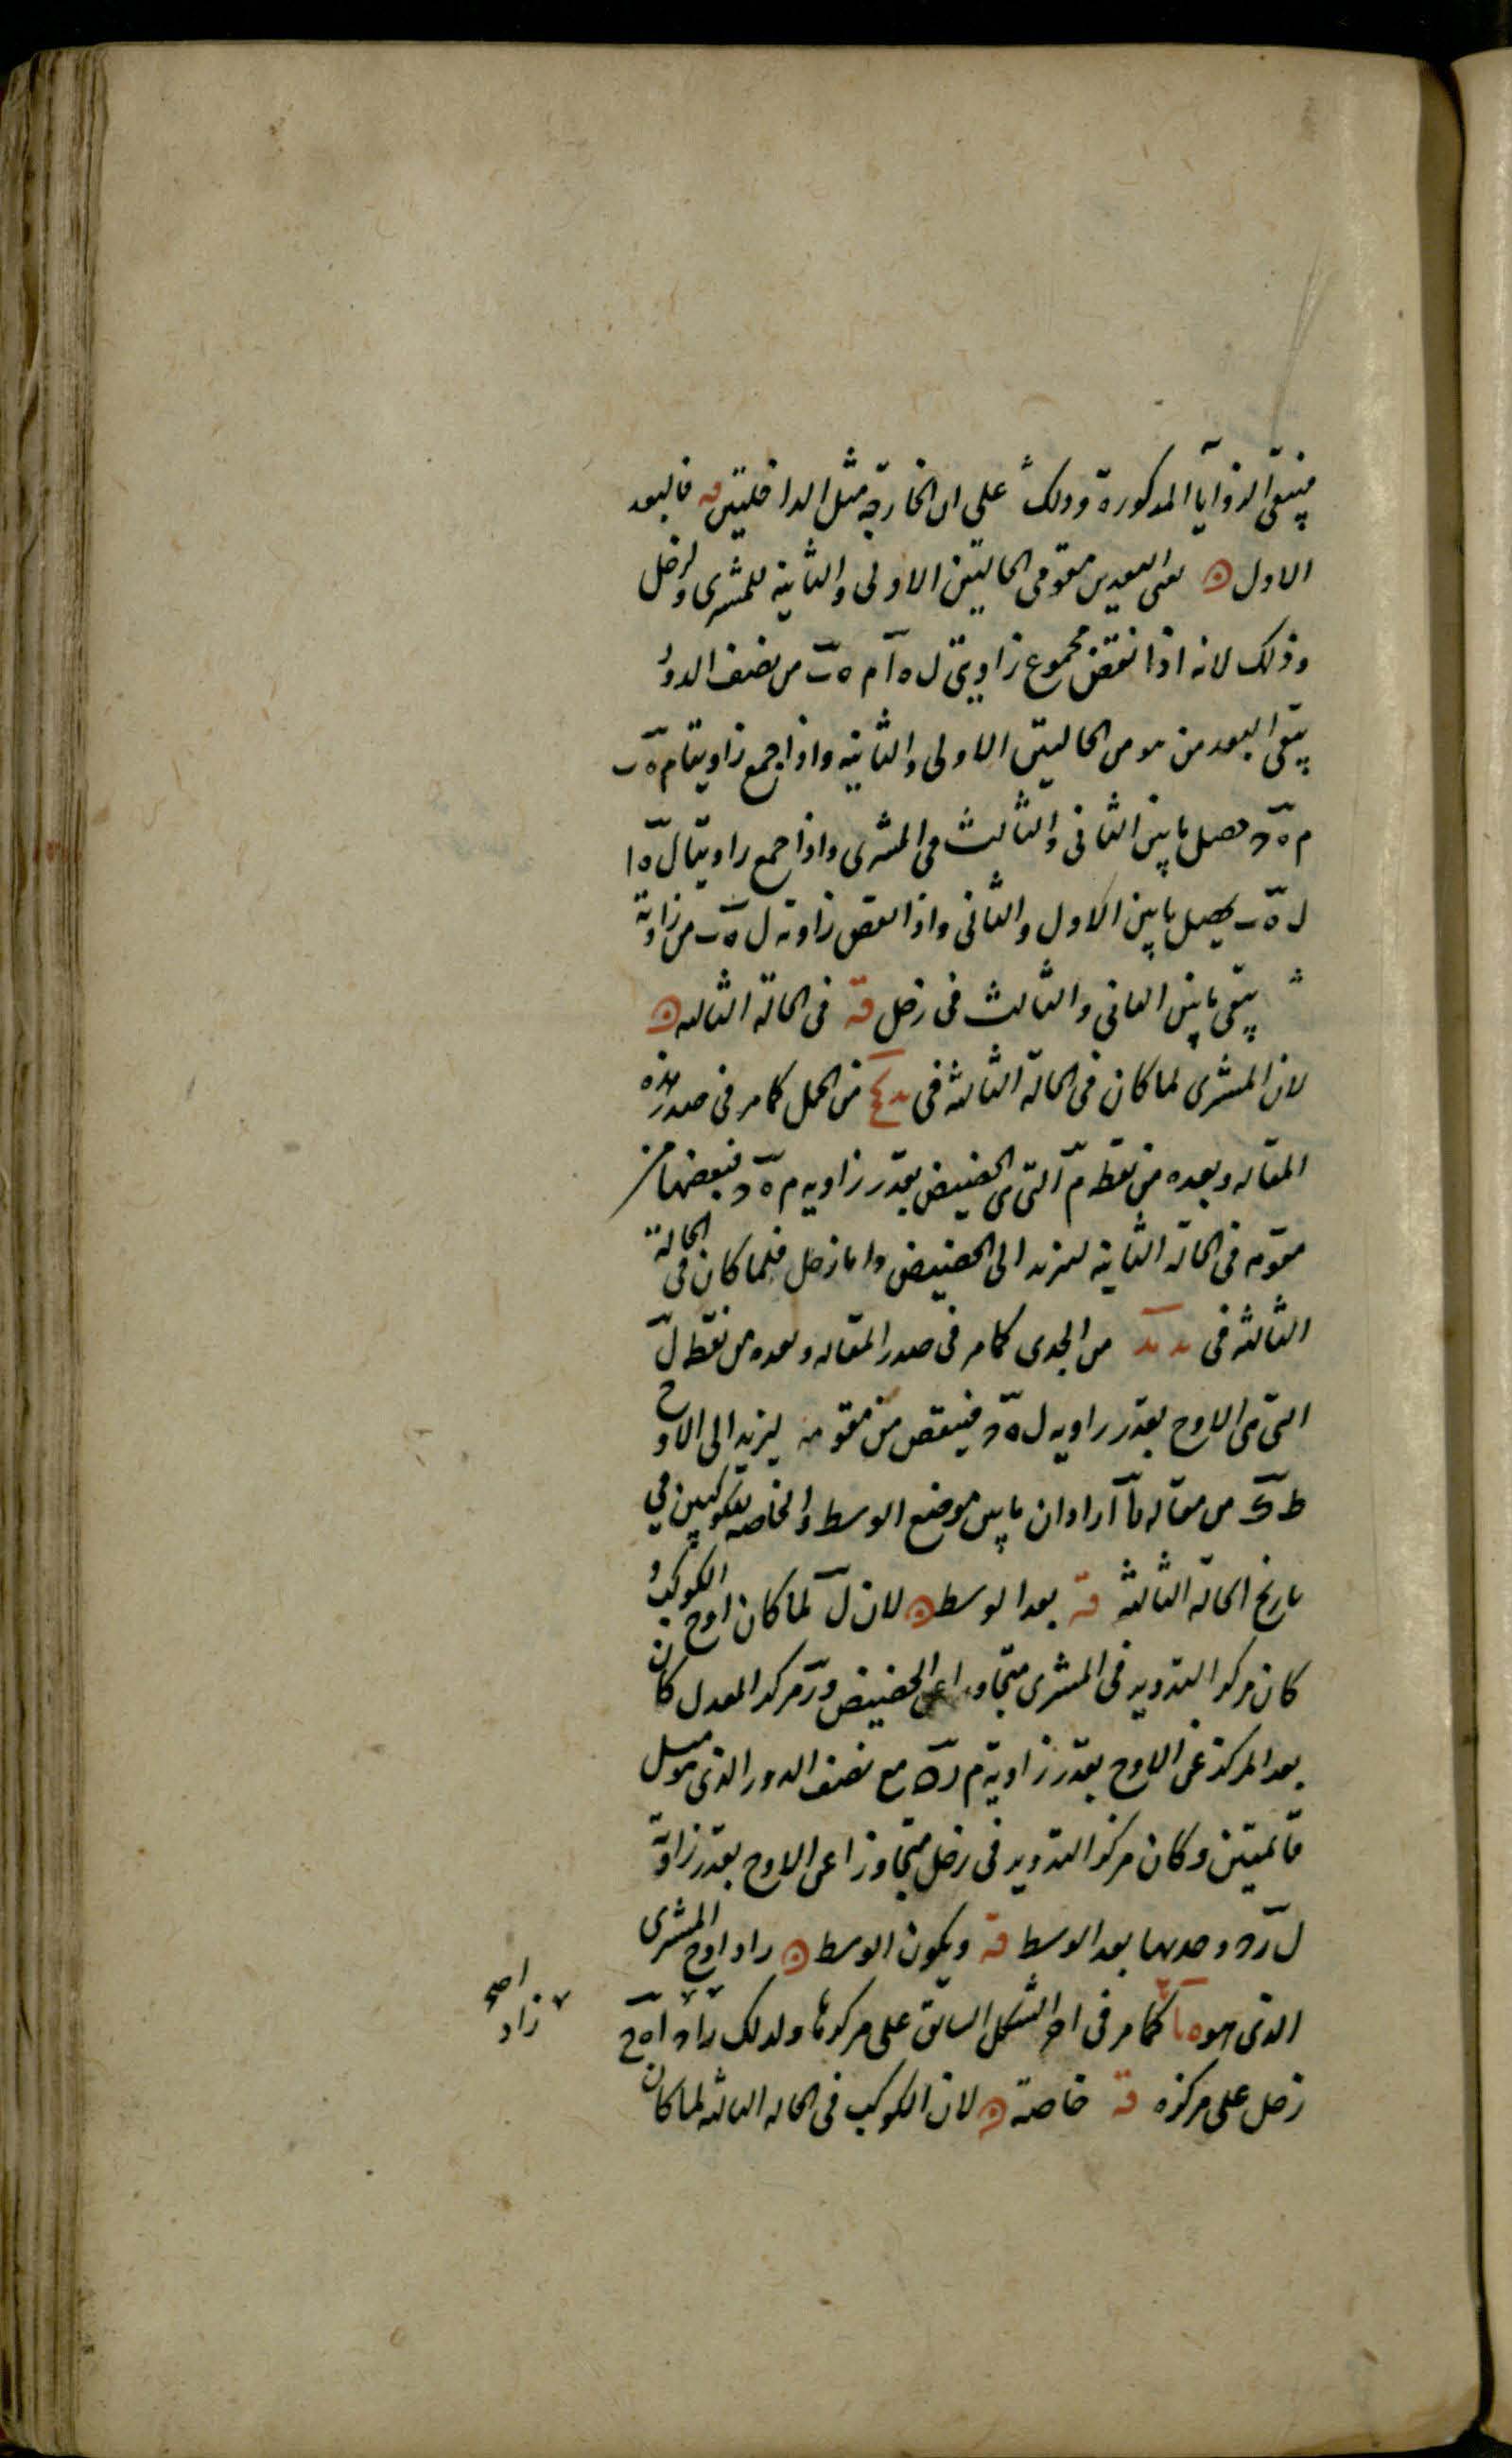 فيبقى الزوايا المذكورة وذلك على ان الخارجة مثل الداخليتين قه فالبعد
الاول يعنى البعد بين مقومى الحاليتين الاولى والثانية للمشترى وزحل
وذلك لانه اذا نقص مجموع زاويتى ل ه ا م ه ب من نصف الدور
يبقى البعد من الحاليتين الاولى والثانية واذا جمع زاويتا م ه ب
م ه حصل ما بين الثانى والثالث فى المشترى واذا جمع زاويتا ل ه ا
ل ه ب يحصل ما بين الاول والثانى واذا نقص زاوية ل ه ب من زاوية
يبقى ما بين الثانى والثالث فى زحل قه فى الحالة الثالثه
لان المشترى لما كان فى الحالة الثالثة فى من الحمل كما مر فى صدر هذه
المقاله وبعده من نقطه م التى هى الحضيض بقدر زاويه م ه فينقصها من
مقومه فى الحالة الثانيه ليزيد الى الحضيض واما زحل فلما كان فى الحالة
الثالثه فى يد يد من الجدى كما مر فى صدر المقاله وبعده من نقطه ل
التى هى الاوج بقدر زاويه ل ه فينقص من مقومه ليزيد الى الاوج
من مقاله يا اراد ان ما بين موضع الوسط والخاصه للكوكبين فى
تاريخ الحالة الثالثة قه بعد الوسط لان ل لما كان اوج الكوكب و
كان مركز التدوير فى المشترى متجاوزا عن الحضيض ور مركز المعدل كان
بعد المركز عن الاوج بقدر زاوية م ر ه مع نصف الدور الذى هو مثل
قائمتين وكان مركز التدوير فى زحل متجاوزا عن الاوج بقدر زاوية
ل ر وحدها بعد الوسط قه ويكون الوسط زاد اوج المشترى
الذى هو كما مر فى اخر الشكل السابق على مركزها ولذلك زاد اوج
زحل على مركزه قه خاصة لان الكوكب فى الحاله الثالثه لما كان
زاد